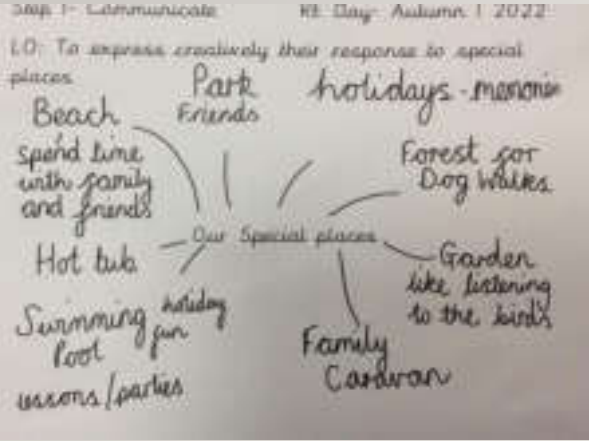 Step 1- Communicate RE Day- Autumn 1 2022
LO: To express creatively their response to special
places
Park
Friends
holidays - memories
Beach
spend time
with family
and friends
Forest for
Dog Walks
Our Special places
Hot tub
Garden
like listening
to the birds
Swimming
Pool
holiday
fun
lessons/parties
Family
Caravan